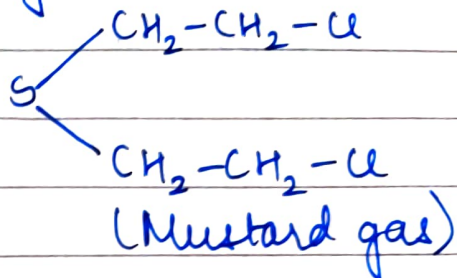 CH₂-CH₂-Cl
S
CH₂-CH₂-Cl
(Mustard gas)